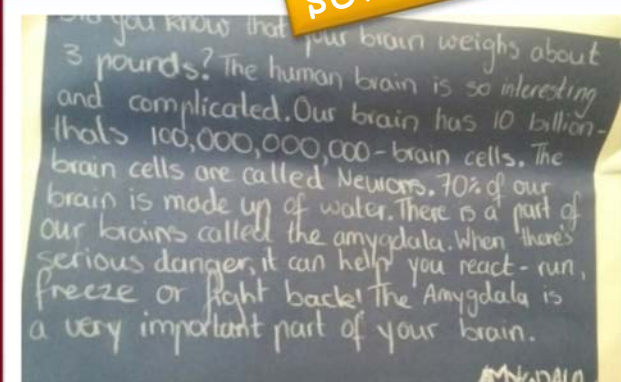 SO
Did you know that your brain weighs about
3 pounds? The human brain is so interesting
and complicated. Our brain has 10 billion-
thats 100,000,000,000-brain cells. The
brain cells are called Neurons. 70% of our
brain is made up of water. There is a part of
our brains called the amygdala. When there's
serious danger, it can help you react-run,
freeze or fight back! The Amygdala is
a very important part of your brain.